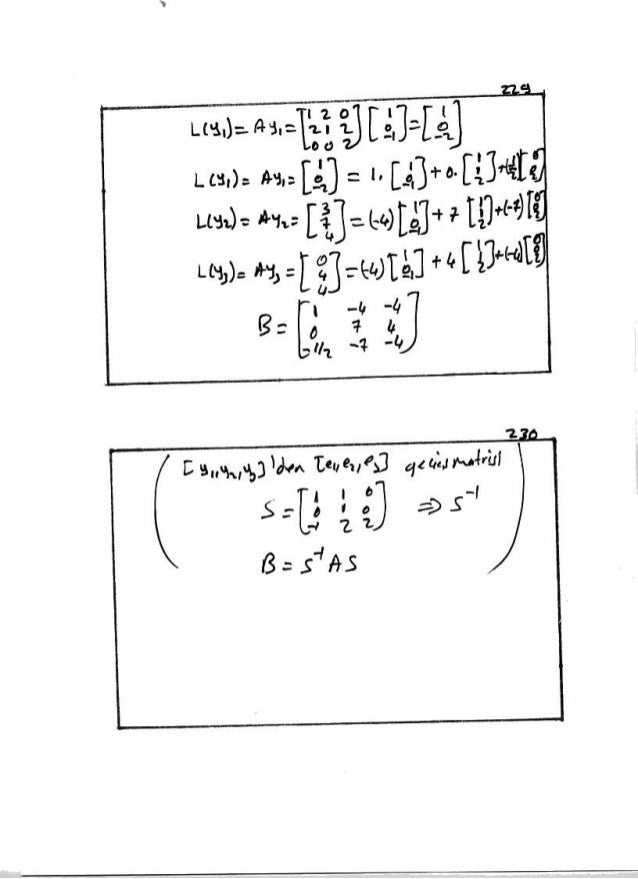 229
L(y₁) = Ay₁ = [1 2 0; 2 1 2; 0 0 2] [1; 0; -1] = [1; 0; -2]
L(y₁) = Ay₁ = [1; 0; -2] = 1. [1; 0; -1] + 0. [1; 1; 2] + (-1/2) [0; 0; 2]
L(y₂) = Ay₂ = [3; 7; 4] = (-4) [1; 0; -1] + 7 [1; 1; 2] + (-7) [0; 0; 2]
L(y₃) = Ay₃ = [0; 4; 4] = (-4) [1; 0; -1] + 4 [1; 1; 2] + (-4) [0; 0; 2]
B = [1 -4 -4; 0 7 4; -1/2 -7 -4]
230
[y₁, y₂, y₃]'den [e₁, e₂, e₃] geçiş matrisi
S = [1 1 0; 0 1 0; -1 2 2] ⇒ S⁻¹
B = S⁻¹AS